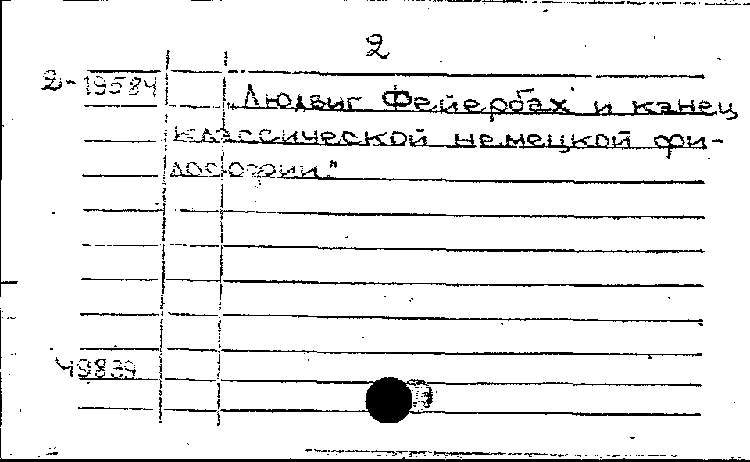 2
2-19584
„Людвиг Фейербах и канец
классической немецкой фи-
лософии."
49839